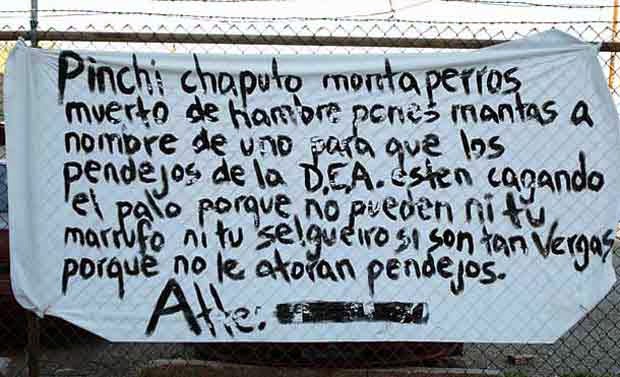 Pinchi chaputo montaperros
muerto de hambre pones mantas a
nombre de uno para que los
pendejos de la D.E.A. esten cagando
el palo porque no pueden ni tu
marrufo ni tu selgueiro si son tan Vergas
porque no le atoran pendejos.
Atte: